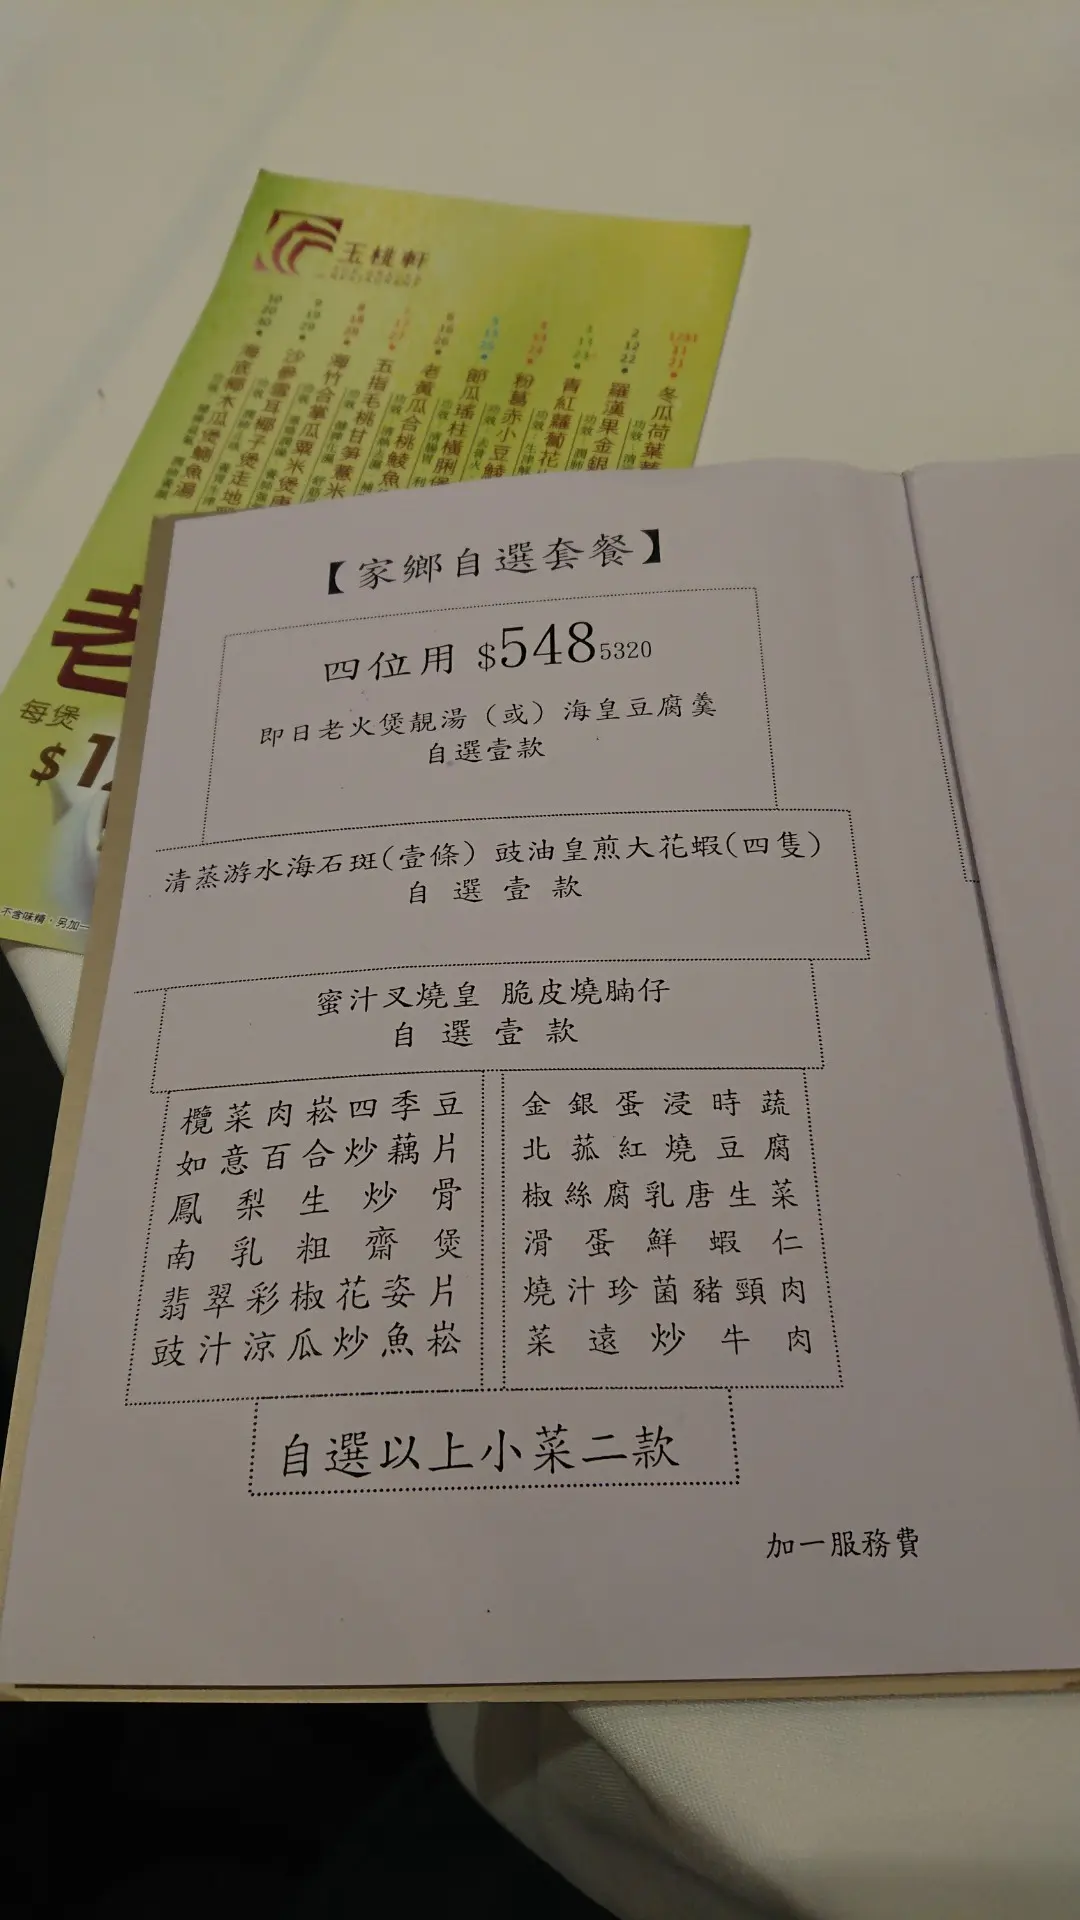 玉桃軒
10 20 30 • 海底椰木瓜煲鯽魚湯
9 19 29 • 沙參雪耳椰子煲走地
8 18 28 • 海竹合掌瓜粟米煲
五指毛桃甘笋薏米
6 16 26 • 老黃瓜合桃鯪魚
節瓜瑤柱橫脷煲
粉葛赤小豆鯪
青紅蘿蔔花
2 12 22 • 羅漢果金銀
1/31 11 21 • 冬瓜荷葉薏
老
每煲
$12
不含味精，另加一
【家鄉自選套餐】
四位用 $548 5320
即日老火煲靚湯（或）海皇豆腐羹
自選壹款
清蒸游水海石斑(壹條) 豉油皇煎大花蝦(四隻)
自選壹款
蜜汁叉燒皇 脆皮燒腩仔
自選壹款
欖菜肉崧四季豆
如意百合炒藕片
鳳梨生炒骨
南乳粗齋煲
翡翠彩椒花姿片
豉汁涼瓜炒魚崧
金銀蛋浸時蔬
北菰紅燒豆腐
椒絲腐乳唐生菜
滑蛋鮮蝦仁
燒汁珍菌豬頸肉
菜遠炒牛肉
自選以上小菜二款
加一服務費